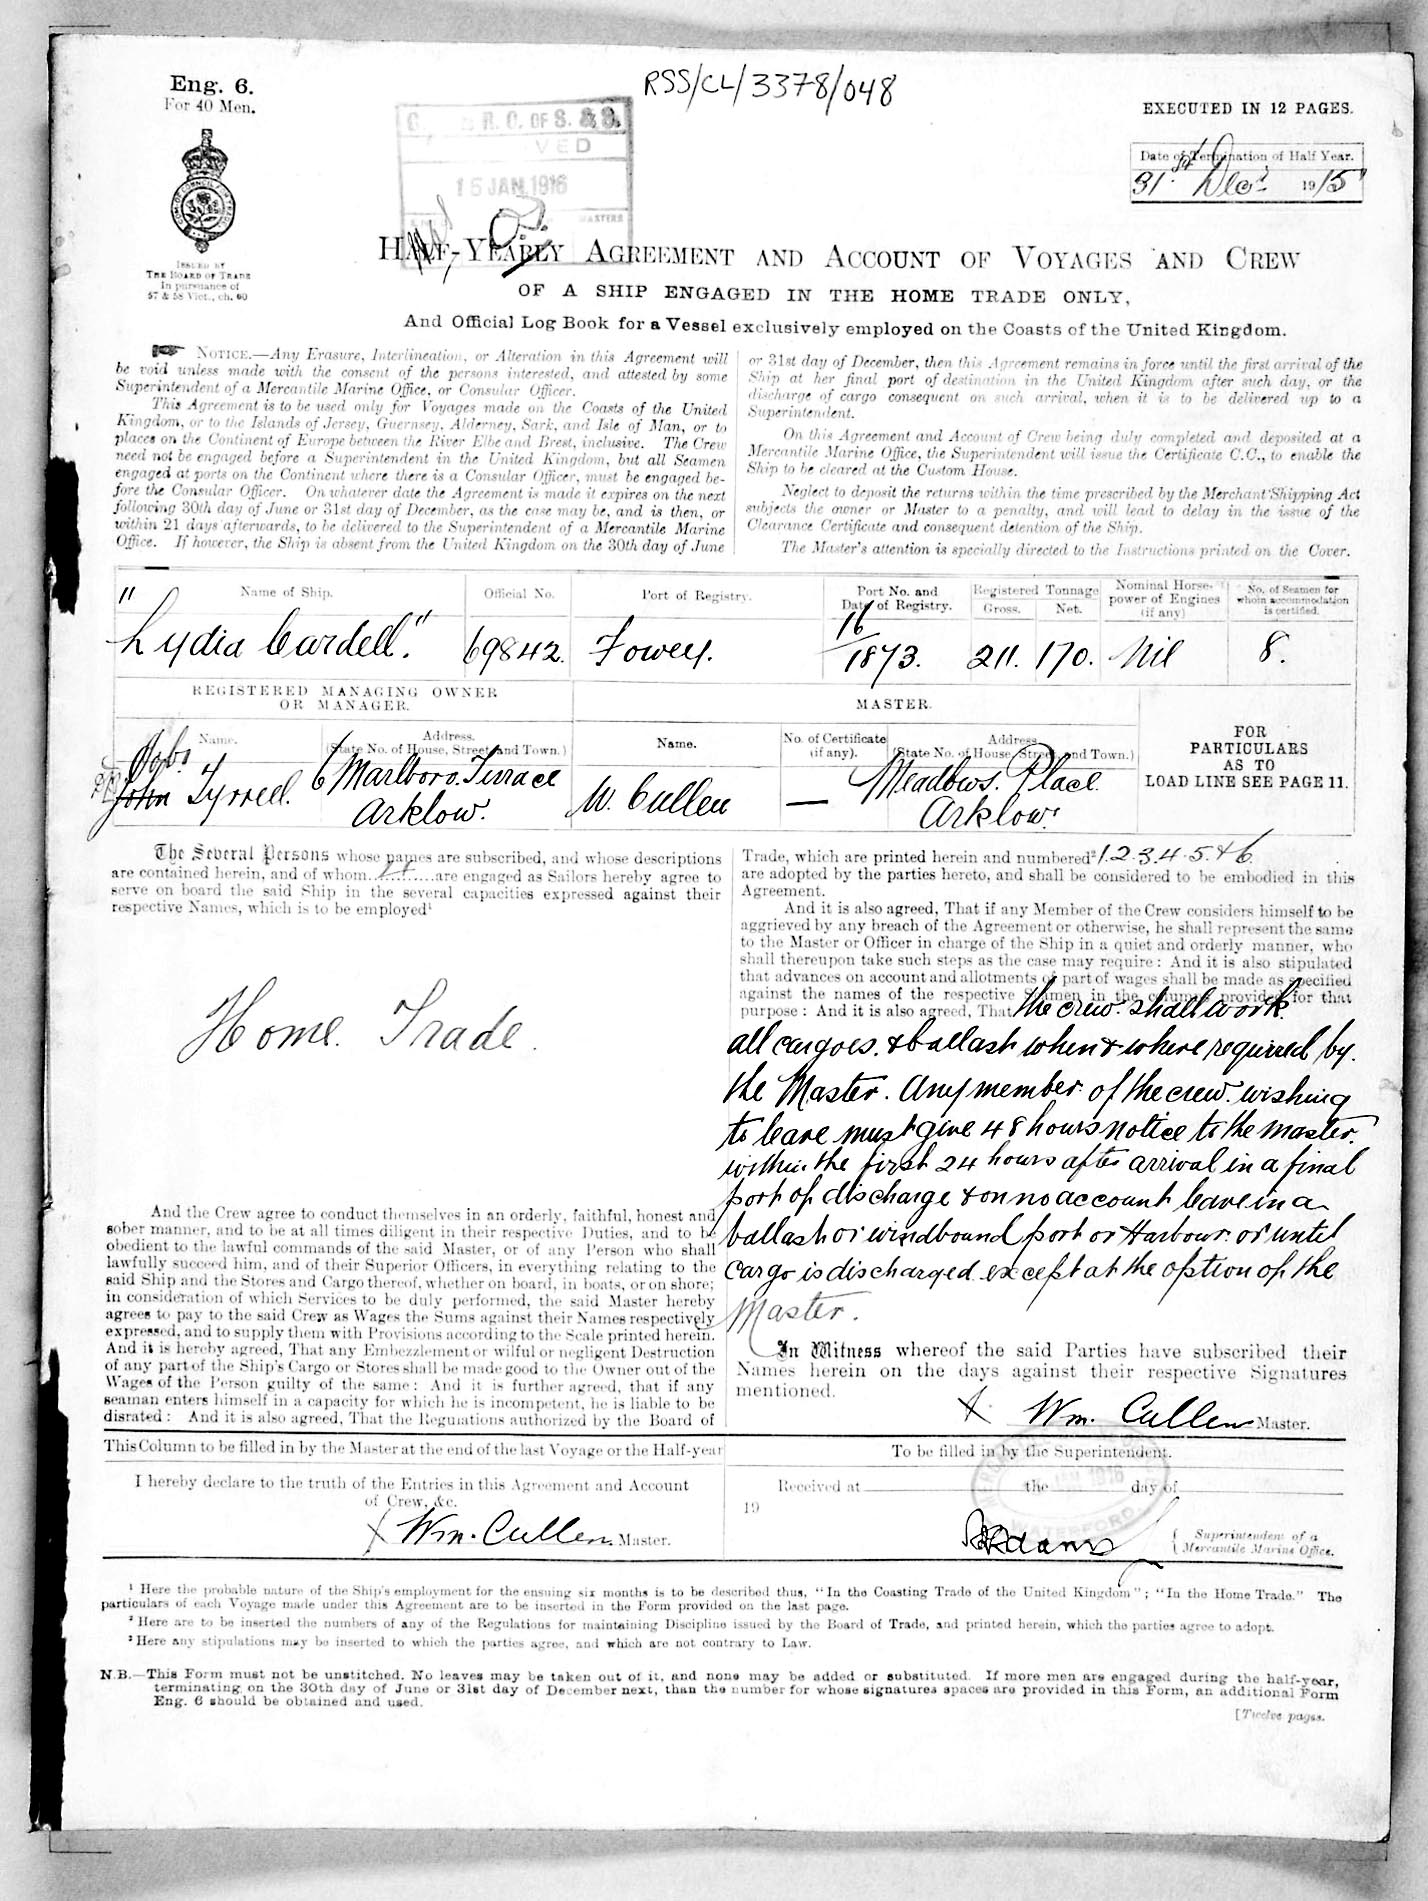 Eng. 6.
For 40 Men.
RSS/CL/3378/048
EXECUTED IN 12 PAGES.
R. G. OF S. & S.
VED
15 JAN. 1916
MASTERS
Date of Termination of Half Year.
31st Decr 1915
ISSUED BY
THE BOARD OF TRADE
In pursuance of
57 & 58 Vict., ch. 60
HALF-YEARLY AGREEMENT AND ACCOUNT OF VOYAGES AND CREW
OF A SHIP ENGAGED IN THE HOME TRADE ONLY,
And Official Log Book for a Vessel exclusively employed on the Coasts of the United Kingdom.
NOTICE.—Any Erasure, Interlineation, or Alteration in this Agreement will
be void unless made with the consent of the persons interested, and attested by some
Superintendent of a Mercantile Marine Office, or Consular Officer.
This Agreement is to be used only for Voyages made on the Coasts of the United
Kingdom, or to the Islands of Jersey, Guernsey, Alderney, Sark, and Isle of Man, or to
places on the Continent of Europe between the River Elbe and Brest, inclusive. The Crew
need not be engaged before a Superintendent in the United Kingdom, but all Seamen
engaged at ports on the Continent where there is a Consular Officer, must be engaged be-
fore the Consular Officer. On whatever date the Agreement is made it expires on the next
following 30th day of June or 31st day of December, as the case may be, and is then, or
within 21 days afterwards, to be delivered to the Superintendent of a Mercantile Marine
Office. If however, the Ship is absent from the United Kingdom on the 30th day of June
or 31st day of December, then this Agreement remains in force until the first arrival of the
Ship at her final port of destination in the United Kingdom after such day, or the
discharge of cargo consequent on such arrival, when it is to be delivered up to a
Superintendent.
On this Agreement and Account of Crew being duly completed and deposited at a
Mercantile Marine Office, the Superintendent will issue the Certificate C.C., to enable the
Ship to be cleared at the Custom House.
Neglect to deposit the returns within the time prescribed by the Merchant Shipping Act
subjects the owner or Master to a penalty, and will lead to delay in the issue of the
Clearance Certificate and consequent detention of the Ship.
The Master's attention is specially directed to the Instructions printed on the Cover.
Name of Ship. Official No. Port of Registry. Port No. and Date of Registry. Registered Tonnage Gross. Net. Nominal Horse-power of Engines (if any) No. of Seamen for whom accommodation is certified.
"Lydia Cardell". 69842. Fowey. 16/1873. 211. 170. Nil 8.
REGISTERED MANAGING OWNER
OR MANAGER.
MASTER.
FOR
PARTICULARS
AS TO
LOAD LINE SEE PAGE 11.
Name. Address. (State No. of House, Street, and Town.) Name. No. of Certificate (if any). Address (State No. of House, Street, and Town.)
John Tyrrell. 6 Marlboro. Terrace W. Cullen — Meadows. Place.
Arklow. Arklow.
The Several Persons whose names are subscribed, and whose descriptions
are contained herein, and of whom are engaged as Sailors hereby agree to
serve on board the said Ship in the several capacities expressed against their
respective Names, which is to be employed¹
Home. Trade.
And the Crew agree to conduct themselves in an orderly, faithful, honest and
sober manner, and to be at all times diligent in their respective Duties, and to be
obedient to the lawful commands of the said Master, or of any Person who shall
lawfully succeed him, and of their Superior Officers, in everything relating to the
said Ship and the Stores and Cargo thereof, whether on board, in boats, or on shore;
in consideration of which Services to be duly performed, the said Master hereby
agrees to pay to the said Crew as Wages the Sums against their Names respectively
expressed, and to supply them with Provisions according to the Scale printed herein.
And it is hereby agreed, That any Embezzlement or wilful or negligent Destruction
of any part of the Ship's Cargo or Stores shall be made good to the Owner out of the
Wages of the Person guilty of the same: And it is further agreed, that if any
seaman enters himself in a capacity for which he is incompetent, he is liable to be
disrated: And it is also agreed, That the Regulations authorized by the Board of
Trade, which are printed herein and numbered² 1.2.3.4.5.&6
are adopted by the parties hereto, and shall be considered to be embodied in this
Agreement.
And it is also agreed, That if any Member of the Crew considers himself to be
aggrieved by any breach of the Agreement or otherwise, he shall represent the same
to the Master or Officer in charge of the Ship in a quiet and orderly manner, who
shall thereupon take such steps as the case may require: And it is also stipulated
that advances on account and allotments of part of wages shall be made as specified
against the names of the respective Seamen in the columns provided for that
purpose: And it is also agreed, That the crew. shall work
all cargoes. & ballast when & where required by.
the Master. Any member of the crew. wishing
to leave must give 48 hours notice to the master.
within the first 24 hours after arrival in a final
port of discharge & on no account leave in a
ballast or windbound port or Harbour. or until
Cargo is discharged except at the option of the
Master.
In Witness whereof the said Parties have subscribed their
Names herein on the days against their respective Signatures
mentioned.
X Wm. Cullen Master.
This Column to be filled in by the Master at the end of the last Voyage or the Half-year
I hereby declare to the truth of the Entries in this Agreement and Account
of Crew, &c.
X Wm. Cullen. Master.
To be filled in by the Superintendent.
Received at the day of
19
JAN 1916
WATERFORD
Adams
Superintendent of a
Mercantile Marine Office.
¹ Here the probable nature of the Ship's employment for the ensuing six months is to be described thus, "In the Coasting Trade of the United Kingdom"; "In the Home Trade." The
particulars of each Voyage made under this Agreement are to be inserted in the Form provided on the last page.
² Here are to be inserted the numbers of any of the Regulations for maintaining Discipline issued by the Board of Trade, and printed herein, which the parties agree to adopt.
³ Here any stipulations may be inserted to which the parties agree, and which are not contrary to Law.
N.B.—This Form must not be unstitched. No leaves may be taken out of it, and none may be added or substituted. If more men are engaged during the half-year,
terminating on the 30th day of June or 31st day of December next, than the number for whose signatures spaces are provided in this Form, an additional Form
Eng. 6 should be obtained and used.
[Twelve pages.